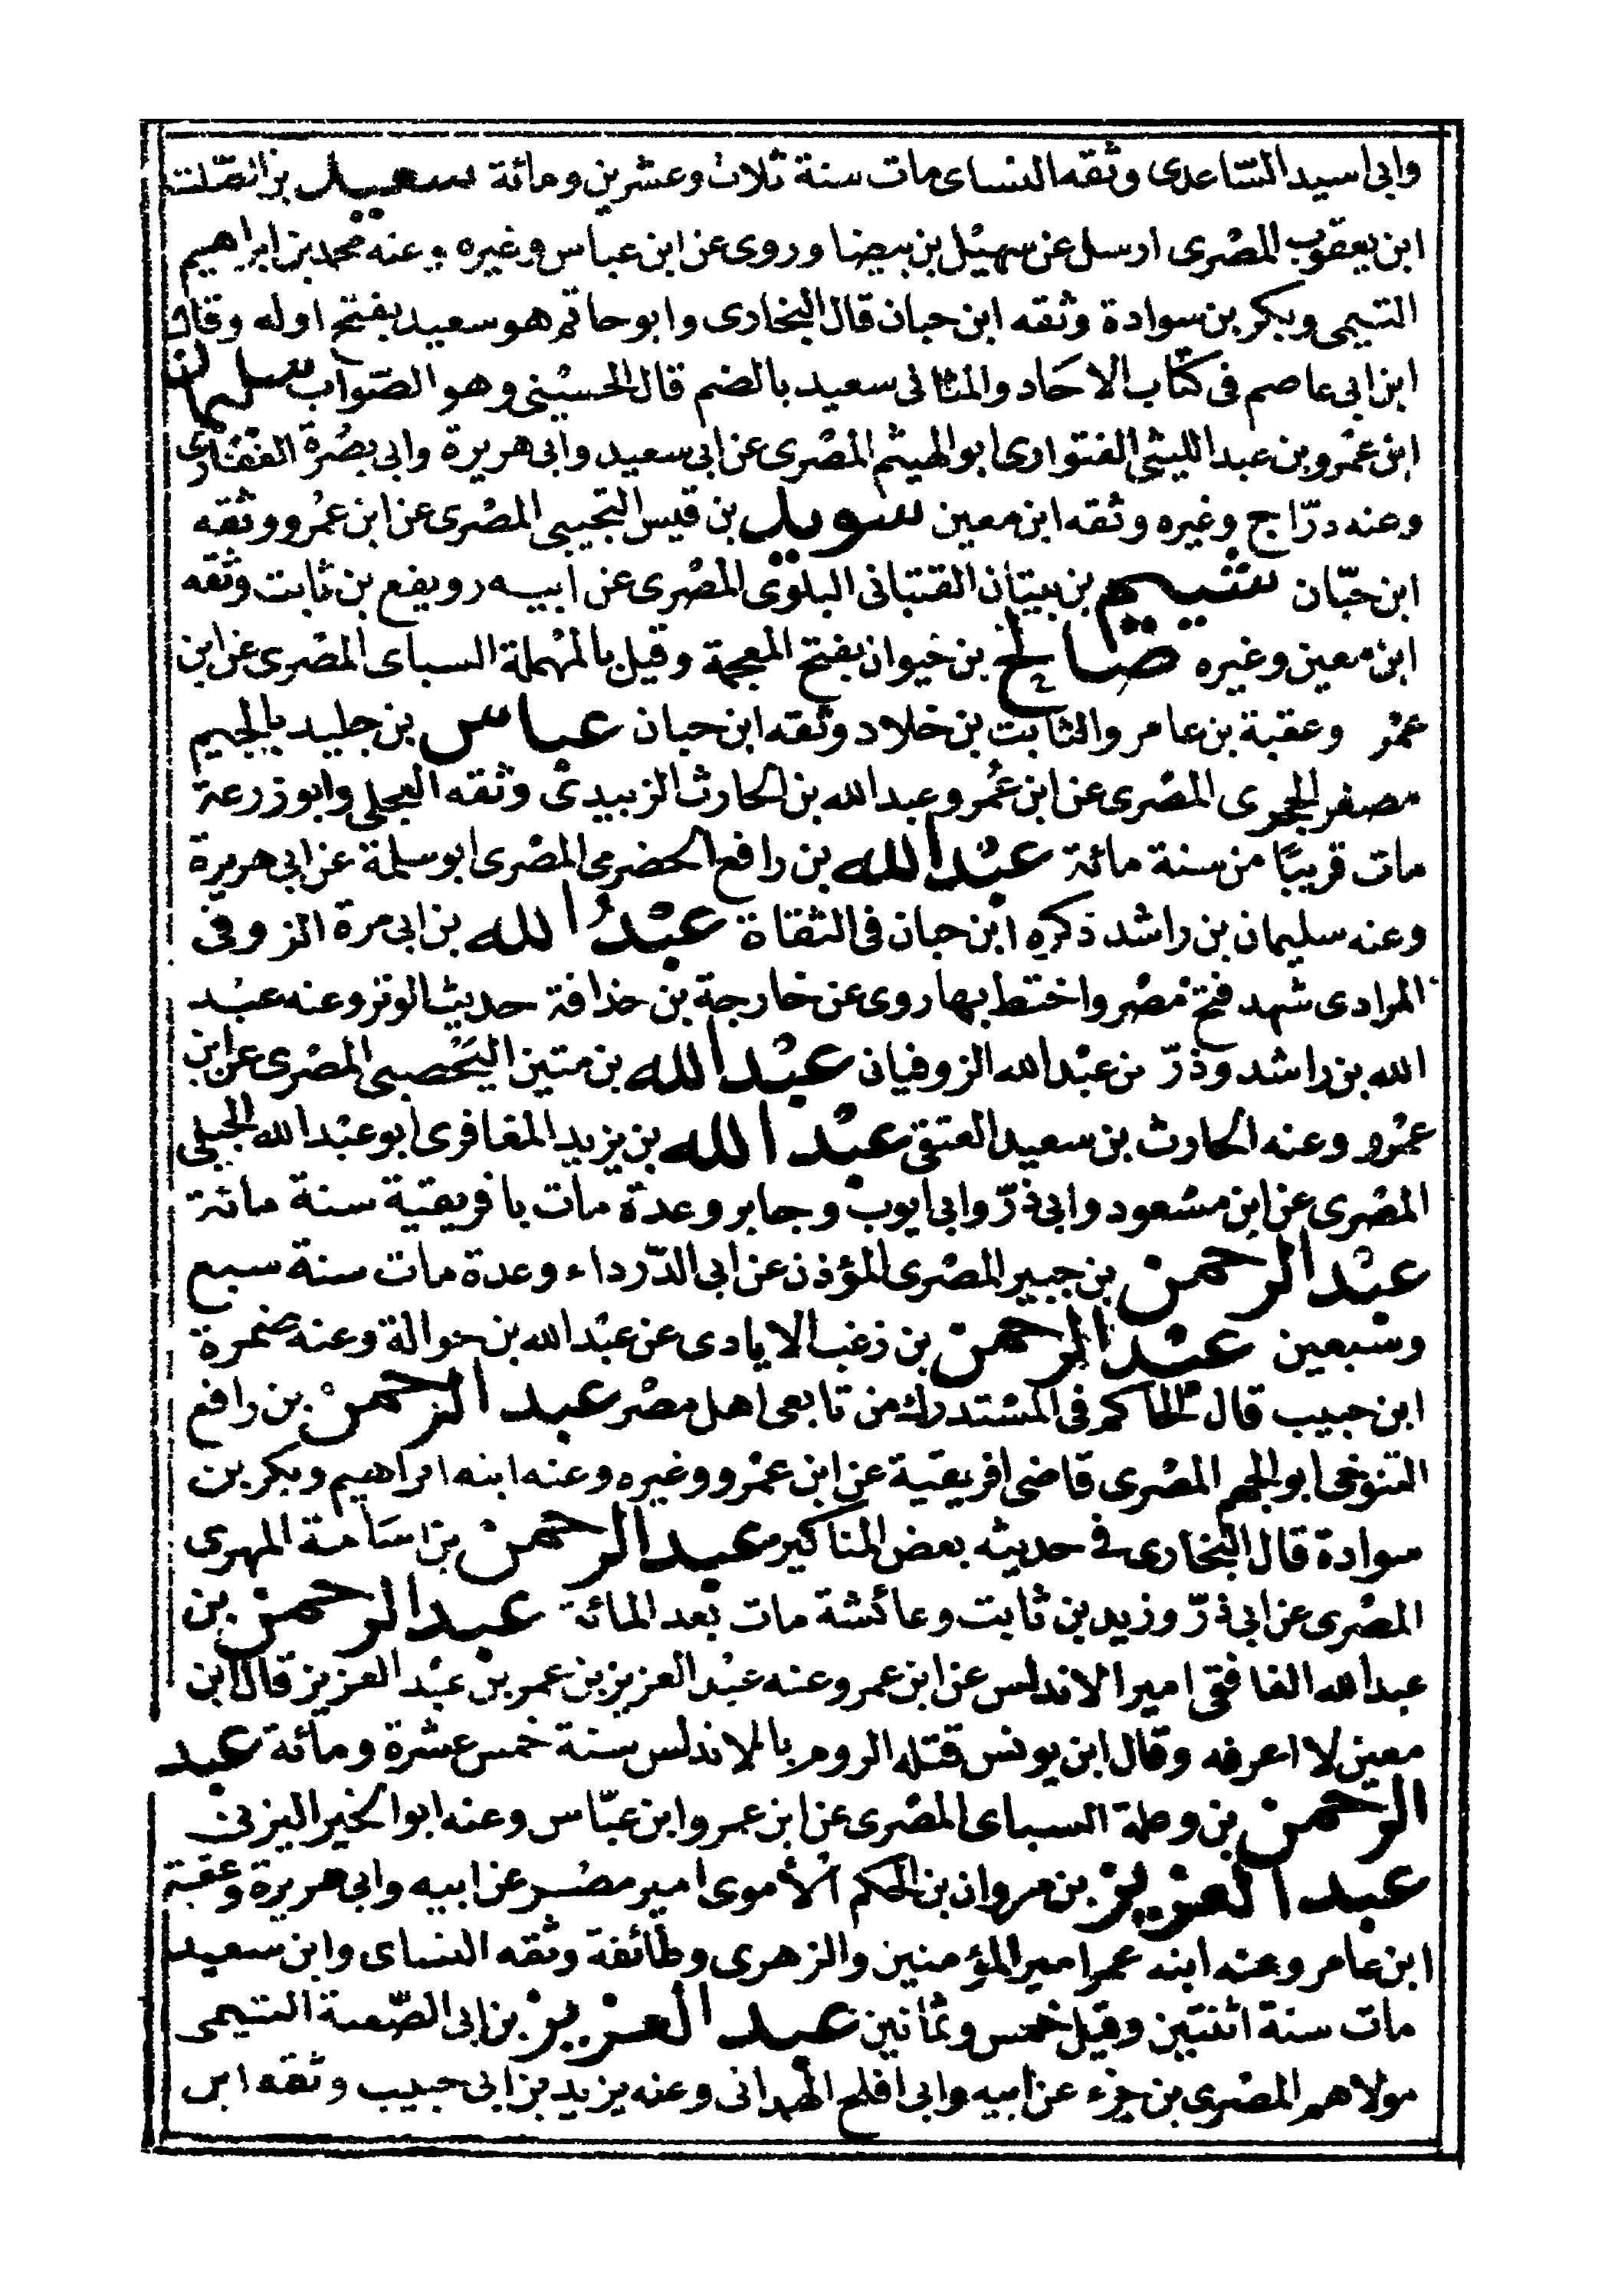 وابى اسيد الساعدى وثقه النساى مات سنة ثلاث وعشرين ومائة سعيد بن الصلت
ابن يعقوب المصرى ارسل عن سهيل بن بيضا وروى عن ابن عباس وغيره وعنه محمد بن ابراهيم
التيمى وبكر بن سوادة وثقه ابن حبان قال البخارى وابو حاتم هو سعيد بفتح اوله وقال
ابن ابى عاصم فى كتاب الاحاد والمثانى سعيد بالضم قال الحسينى وهو الصواب سليمان
ابن عمرو بن عبد الليثى الفتوارى ابو الهيثم المصرى عن ابى سعيد وابى هريرة وابى بصرة الغفارى
وعنه دراج وغيره وثقه ابن معين سويد بن قيس التجيبى المصرى عن ابن عمرو وثقه
ابن حبّان شييم بن بيتان القتبانى البلوى المصرى عن ابيه رويفع بن ثابت وثقه
ابن معين وغيره صالح بن خيوان بفتح المعجمة وقيل بالمهملة السباى المصرى عن ابن
عمر وعقبة بن عامر والثابت بن خلاد وثقه ابن حبان عباس بن جليد بالجيم
مصغر الحجرى المصرى عن ابن عمرو عبد الله بن الحارث الزبيدى وثقه العجلى وابو زرعة
مات قريبًا من سنة مائة عبد الله بن رافع الحضرمى المصرى ابو سلمة عن ابى هريرة
وعنه سليمان بن راشد ذكره ابن حبان فى الثقاة عبد الله بن ابى مرة الزوفى
المرادى شهد فتح مصر واختط بها روى عن خارجة بن حذافة حديث الوتر وعنه عبد
الله بن راشد وذرّ بن عبد الله الزوفيان عبد الله بن متين اليحصبى المصرى عن ابن
عمرو وعنه الحارث بن سعيد العتقى عبد الله بن يزيد المغافرى ابو عبد الله الحبلى
المصرى عن ابن مسعود وابى ذرّ وابى ايوب وجابر وعدة مات بافريقية سنة مائة
عبد الرحمن بن جبير المصرى المؤذن عن ابى الدّرداء وعدة مات سنة سبع
وسبعين عبد الرحمن بن زغب الايادى عن عبد الله بن حوالة وعنه ضمرة
ابن حبيب قال الحاكم فى المستدرك من تابعى اهل مصر عبد الرحمن بن رافع
التنوخى ابو الجهم المصرى قاضى افريقية عن ابن عمرو وغيره وعنه ابنه ابراهيم وبكر بن
سوادة قال البخارى فى حديثه بعض المناكير عبد الرحمن بن اسامة المهرى
المصرى عن ابى ذرّ وزيد بن ثابت وعائشة مات بعد المائة عبد الرحمن بن
عبد الله الغافقى امير الاندلس عن ابن عمر وعنه عبد العزيز بن عمر بن عبد العزيز قال ابن
معين لا اعرفه وقال ابن يونس قتله الروم بالاندلس سنة خمس عشرة ومائة عبد
الرحمن بن وعلة السباى المصرى عن ابن عمر وابن عبّاس وعنه ابو الخير اليزنى
عبد العزيز بن مروان بن الحكم الأموى امير مصر عن ابيه وابى هريرة وعقبة
ابن عامر وعنه ابنه عمر امير المؤمنين والزهرى وطائفة وثقه النساى وابن سعيد
مات سنة اثنتين وقيل خمس وثمانين عبد العزيز بن ابى الصّعبة التيمى
مولاهم المصرى بن جزء عن ابيه وابى افلح الهمدانى وعنه يزيد بن ابى حبيب وثقه ابن